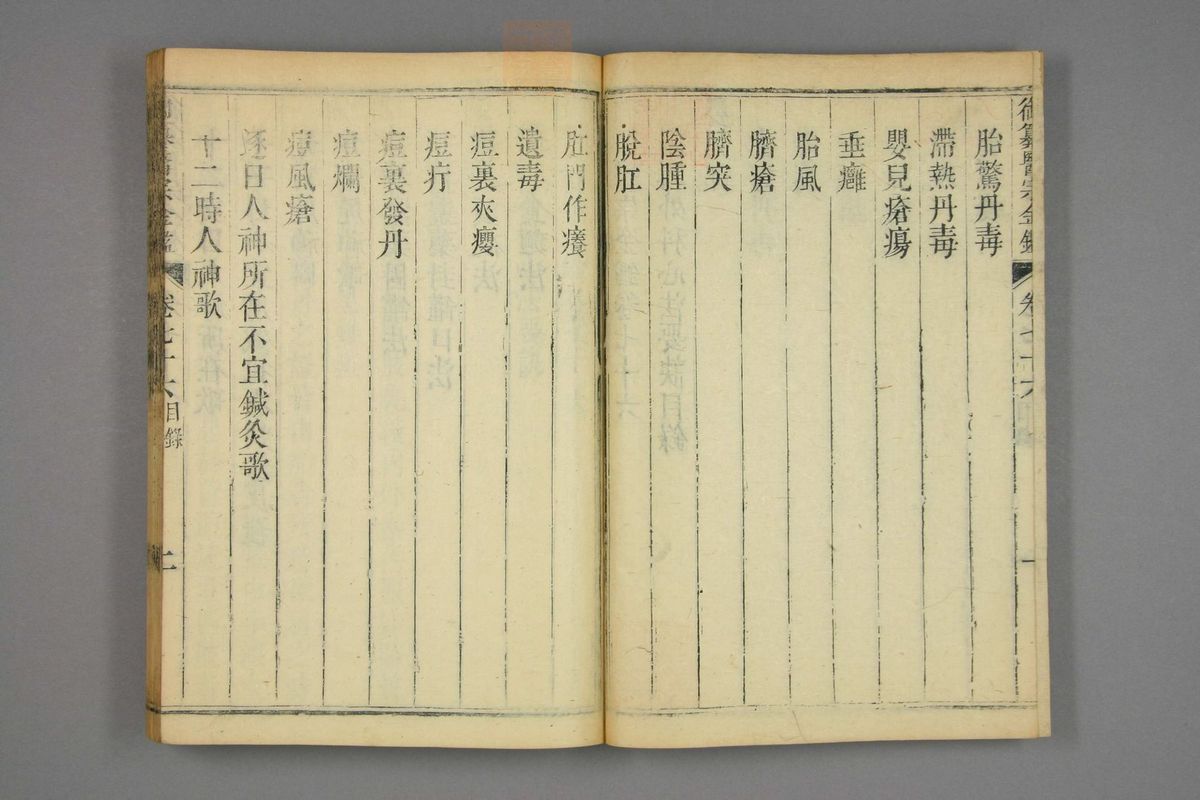 御纂醫宗金鑑 卷七十六 一
胎驚丹毒
滯熱丹毒
嬰兒瘡瘍
垂癰
胎風
臍瘡
臍突
陰腫
脫肛
肛門作癢
遺毒
痘裏夾癭
痘疔
痘裏發丹
痘爛
痘風瘡
逐日人神所在不宜鍼灸歌
十二時人神歌
卷七十六 目錄 二